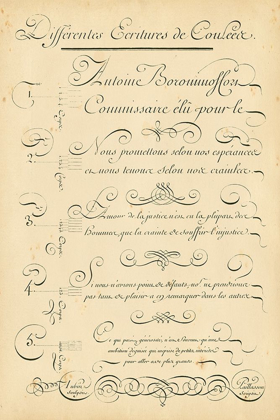 Différentes Ecritures de Coulées.
1.
Antoine
Commissaire élû pour le
2.
Nous promettons selon nos espérances
et nous tenons selon nos craintes.
3.
L'Amour de la justice n'est, en la plupart des
hommes, que la crainte de souffrir l'injustice.
4.
Si nous n'avions point de défauts, ns. ne prendrions
pas tant de plaisir à en remarquer dans les autres
5.
Ce que paroit générosité, n'est
ambition déguisée qui méprise de petits intérêts
pour aller aux plus grands.
Aubin
Sculpsit
Paillasson
Scripsit